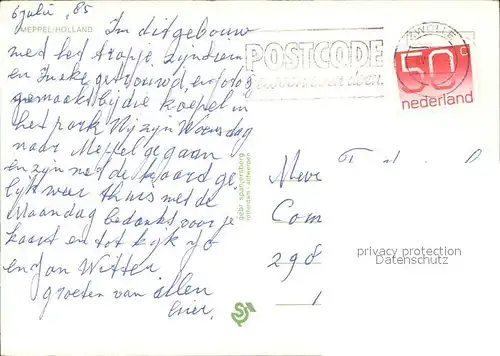 6 juli, 85
MEPPEL-HOLLAND
In dit gebouw
met het trapje zijn Irene
en Ineke getrouwd, en foto's
gemaakt bij die koepel in
het park Wij zijn Woensdag
naar Meppel gegaan
en zijn met de kaart ge-
lijk weer thuis met de
Maandag bedankt voor je
kaart en tot kijk
en Jan Witter
groeten van allen
hier.
gebr spanjersberg
rotterdam - antwerpen
POSTCODE
gewoon even doen.
ZWOLLE
50c
nederland
Meve
Com
298
1
privacy protection
Datenschutz